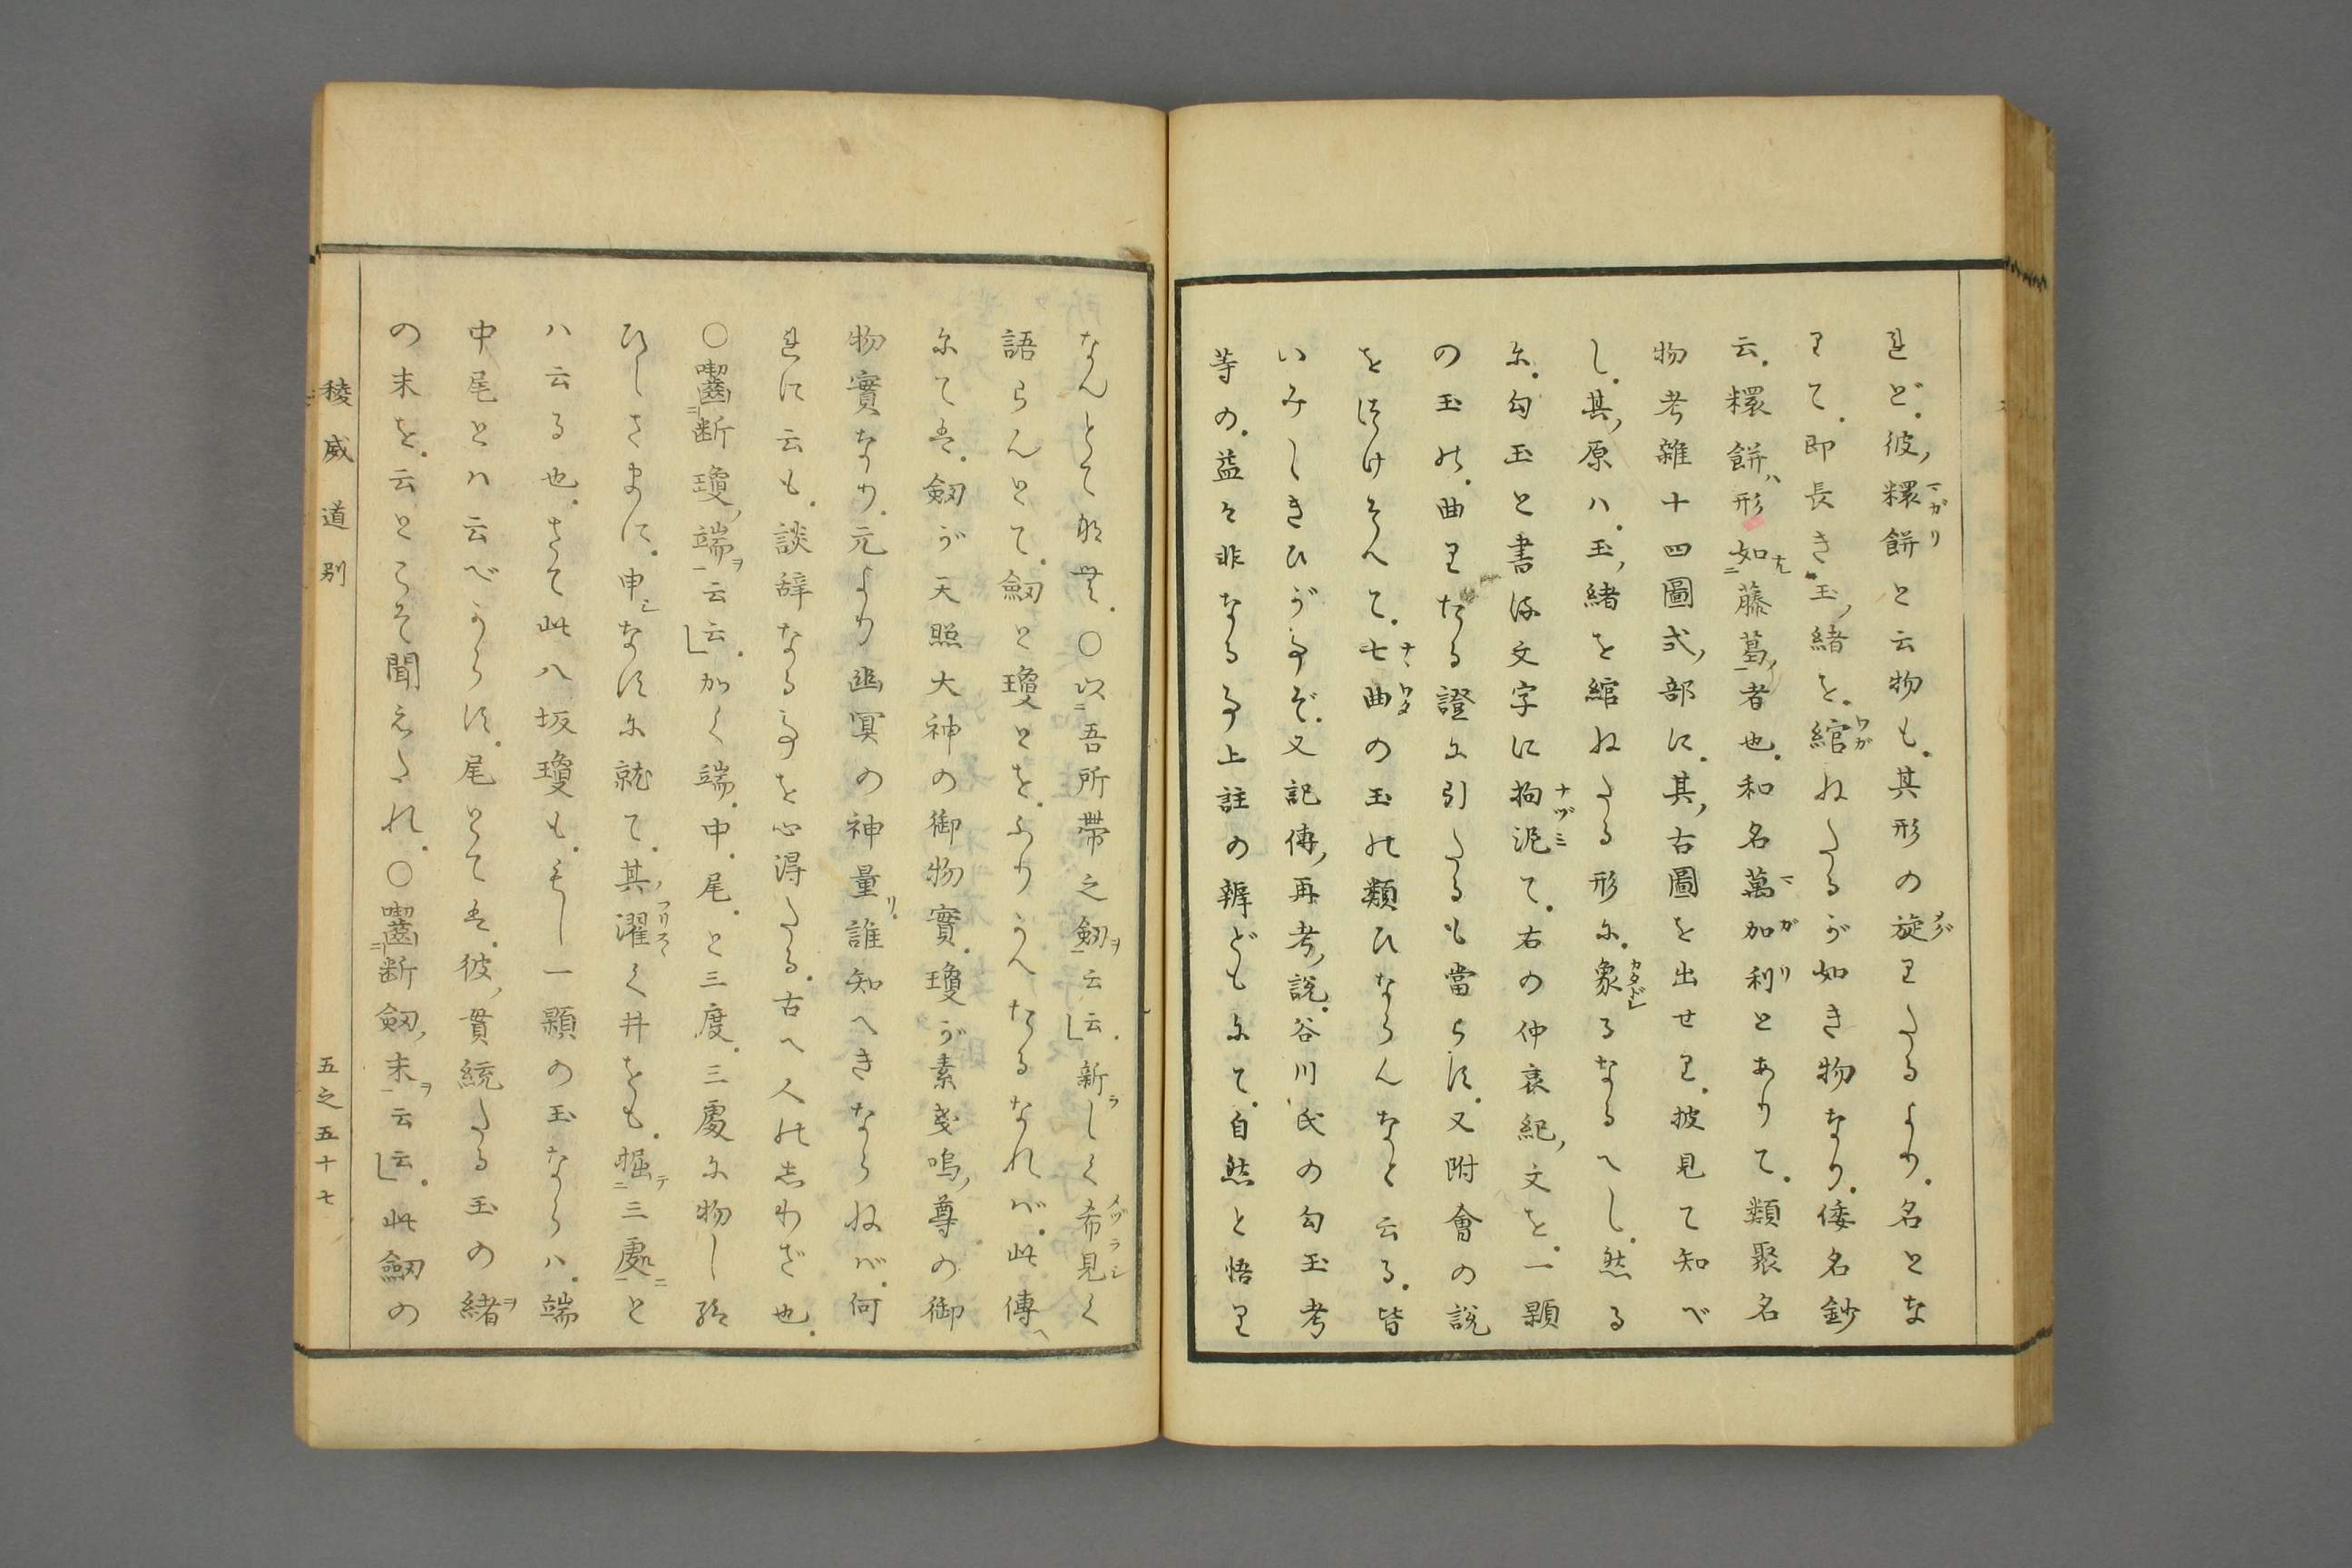 れど。彼糫餅と云物も。其形の旋りたるより。名とな
りて。即長き玉緒を。綰ねたるが如き物なり。倭名鈔
云。糫餅ハ形如藤葛者也。和名萬加利とありて。類聚名
物考雑十四圖式部に。其古圖を出せり。披見て知べ
し。其原ハ。玉緒を綰ねたる形に。象るなるへし。然る
に。勾玉と書る文字に拘泥て。右の仲哀紀文を。一顆
の玉の。曲りたる證に引たるも當らず。又附會の説
をたすけそへて。七曲の玉の類ひならんなと云る。皆
いみしきひが事ぞ。又記傳再考説。谷川氏の勾玉考
等の。益々非なる事上註の辨どもにて。自然と悟り
なんとて那無。〇以吾所帯之劔云云。新しく希見く
語らんとて。劔と瓊とを。ふりかへたるなれば。此傳
にては。劔が天照大神の御物實。瓊が素戔嗚尊の御
物實なり。元より幽冥の神量誰知へきならねば。何
れに云も。談辞なる事を心得たる。古へ人のしわざ也。
〇囓断瓊端云云。かく端。中。尾。と三度。三處に物し給
ひしさまに。申なすに就て。其濯く井をも。掘三處と
ハ云る也。さて此八坂瓊も。もし一顆の玉ならハ。端
中尾とハ云べからず。尾とては。彼貫統たる玉の緒
の末を。云とこそ聞えたれ。〇囓断劔末云云。此劔の
稜威道別
五之五十七